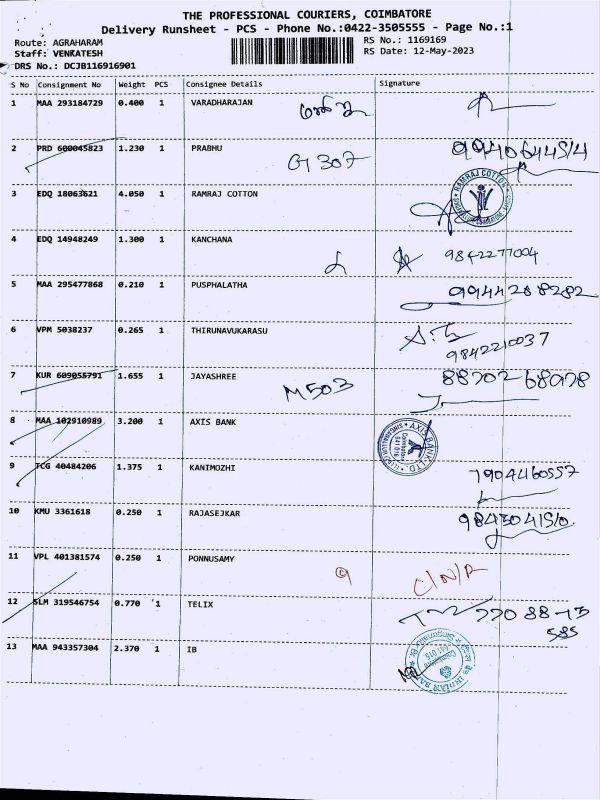 THE PROFESSIONAL COURIERS, COIMBATORE
Delivery Runsheet - PCS - Phone No.:0422-3505555 - Page No.:1
Route: AGRAHARAM RS No.: 1169169
Staff: VENKATESH RS Date: 12-May-2023
DRS No.: DCJB116916901
S No Consignment No Weight PCS Consignee Details Signature
1 MAA 293184729 0.400 1 VARADHARAJAN
2 PRD 600045823 1.230 1 PRABHU G1 307
3 EDQ 18063621 4.050 1 RAMRAJ COTTON RAMRAJ COTTON
4 EDQ 14948249 1.300 1 KANCHANA 9842277004
5 MAA 295477868 0.210 1 PUSPHALATHA 9944288282
6 VPM 5038237 0.265 1 THIRUNAVUKARASU
9842210037
7 KUR 609055791 1.655 1 JAYASHREE M503 88702-68078
8 MAA 102910989 3.200 1 AXIS BANK AXIS BANK LTD.
9 TCG 40484206 1.375 1 KANIMOZHI 7904460557
10 KMU 3361618 0.250 1 RAJASEJKAR
11 VPL 401381574 0.250 1 PONNUSAMY 9 C/N/R
12 SLM 319546754 0.770 1 TELIX 770 88-13
585
13 MAA 943357304 2.370 1 IB